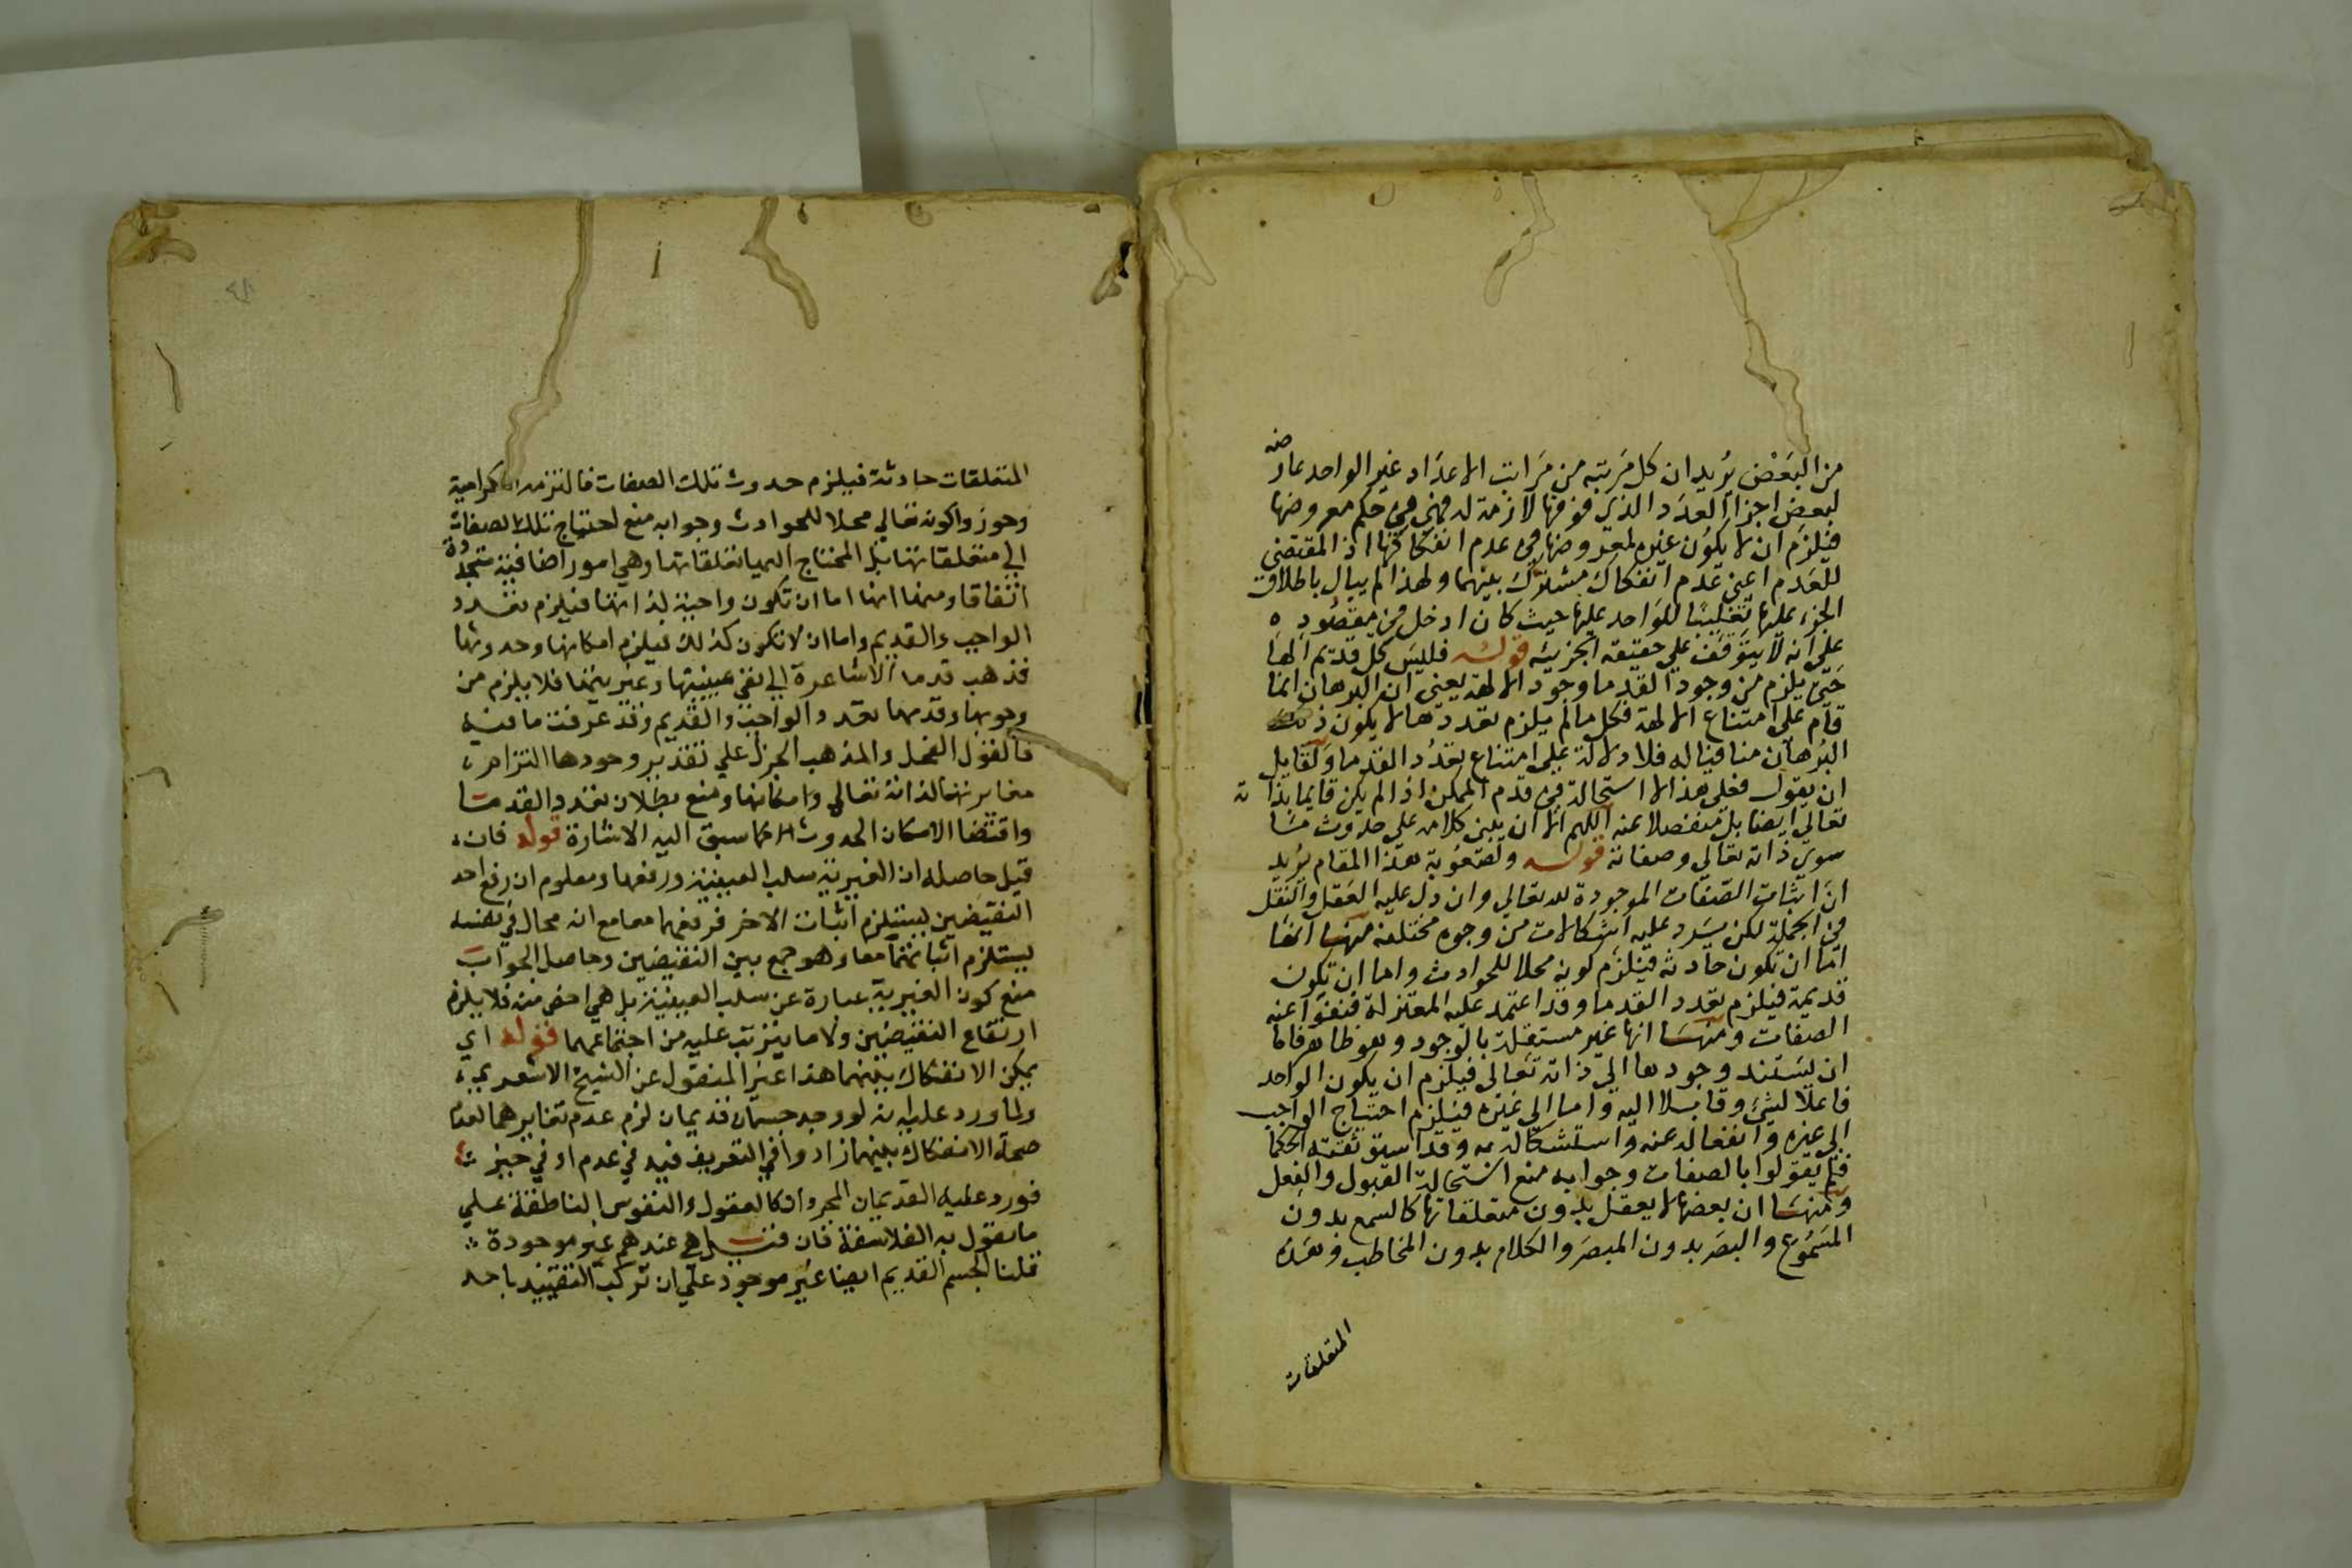 من البعض يريد ان كل مرتبه من مراتب الاعداد غير الواحد عارضه
لبعض اجزا العدد الذي فوقها لازمة له فهي في حكم معروضها
فيلزم ان لا يكون غير لمعروضها في عدم انفكاكها اذ المقتضي
للعدم اعني عدم انفكاك مشترك بينهما ولهذا لم يبال باطلاق
الجزء عليها تغليبا للواحد عليها حيث كان ادخل في مقصوده
على انه لا يتوقف على حقيقه الجزييه قوله فليس كل قديم الها
حتى يلزم من وجود القدما وجود الالهة يعني ان البرهان انما
قام على امتناع الالهة فكل ما لم يلزم تعددها لا يكون ذلك
البرهان منافيا له فلا دلالة على امتناع تعدد القدما ولقايل
ان يقول فعلى هذا لا استحالة في قدم الممكن اذا لم يكن قايما بذاته
تعالى ايضا بل منفصلا عنه اللهم الا ان يبنى كلامه على حدوث ما
سوى ذاته تعالى وصفاته قوله ولصعوبة هذا المقام يريد
ان اثبات الصفات الموجودة لله تعالى وان دل عليه العقل والنقل
في الجملة لكن يرد عليه اشكالات من وجوه مختلفة منها انها
اما ان تكون حادثه فيلزم كونه محلا للحوادث واما ان تكون
قديمة فيلزم تعدد القدما وقد اعتمد عليه المعتزلة فنفوا عنه
الصفات ومنها انها غير مستقلة بالوجود وهو ظاهر فاما
ان يستند وجودها الى ذاته تعالى فيلزم ان يكون الواحد
فاعلا لشئ وقابلا اليه واما الى غيره فيلزم احتياج الواجب
الى غيره وانفعاله عنه واستشكاله به وقد استوثقته الحكما
فلم يقولوا بالصفات وجوابه منع استحالة القبول والفعل
ومنها ان بعضها لا يعقل بدون متعلقاتها كالسمع بدون
المسموع والبصر بدون المبصر والكلام بدون المخاطب وهذه
المتعلقات
المتعلقات حادثة فيلزم حدوث تلك الصفات فالتزمه الكرامية
وجوزوا كونه تعالي محلا للحوادث وجوابه منع احتياج تلك الصفات
الي متعلقاتها بل المحتاج اليها تعلقاتها وهي امور اضافية متجددة
اتفاقا ومنها انها اما ان تكون واجبة لذاتها فيلزم تعدد
الواجب والقديم واما ان لا تكون كذلك فيلزم امكانها وحدوثها
فذهب قدما الاشاعرة الي نفي عينيتها وغيريتها فلا يلزم من
وجوبها وقدمها تعدد الواجب والقديم وقد عرفت ما فيه
فالقول الفحل والمذهب الجزل علي تقدير وجودها التزام
مغايرتها لذاته تعالي وامكانها ومنع بطلان تعدد القدما
واقتضا الامكان الحدوث كما سبق اليه الاشارة قوله فان
قيل حاصله ان الغيرية سلب العينية ورفعها ومعلوم ان رفع احد
النقيضين يستلزم اثبات الاخر فرفعهما معا مع انه محال في نفسه
يستلزم اثباتهما معا وهو جمع بين النقيضين وحاصل الجواب
منع كون الغيرية عبارة عن سلب العينية بل هي اخص منه فلا يلزم
ارتفاع النقيضين ولا ما يترتب عليه من اجتماعهما قوله اي
يمكن الانفكاك بينهما هذا عين المنقول عن الشيخ الاشعري
ولما ورد عليه انه لو وجد جسمان قديمان لزم عدم تغايرهما لعدم
صحة الانفكاك بينهما زادوا في التعريف قيد في عدم او في حيز
فورد عليه القديمان المجردان كالعقول والنفوس الناطقة علي
ما يقول به الفلاسفة فان قيل هي عندهم غير موجودة
قلنا الجسم القديم ايضا غير موجود علي ان تركب التقييد باحد